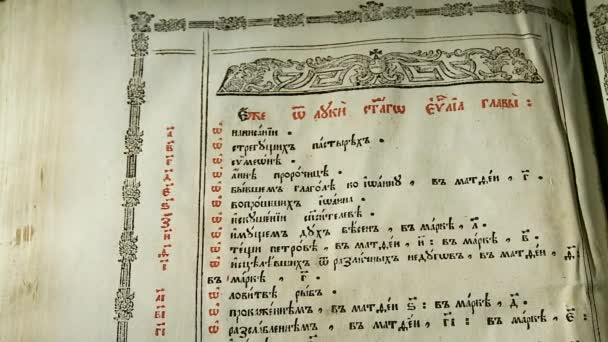 Є҆́же ѿ лꙋкѝ ст҃а́гѡ є҆ѵⷢ҇лїа главы̀ :
а҃ ѡ҆ написа́нїи .
в҃ ѡ҆ стрегꙋ́щихъ па́стырѣхъ .
г҃ ѡ҆ сѷмеѡ́нѣ .
д҃ ѡ҆ а҆́ннѣ проро́чицѣ .
є҃ ѡ҆ бы́вшемъ глаго́лѣ ко і҆ѡа́ннꙋ , въ матѳе́и , г҃ .
ѕ҃ ѡ҆ вопро́шшихъ і҆ѡа́нна .
з҃ ѡ҆ и҆скꙋше́нїи сп҃си́телевѣ .
и҃ ѡ҆ и҆мꙋ́щемъ дꙋ́хъ бѣ́сенъ , въ ма́ркѣ , л҃ .
ѳ҃ ѡ҆ те́щи петро́вѣ , въ матѳе́и , и҃ : въ ма́ркѣ , в҃ .
і҃ ѡ҆ и҆сцѣлѣ́вшихъ ѿ разли́чныхъ недꙋ́гѡвъ , въ матѳе́и , д҃ :
въ ма́ркѣ , г҃ .
а҃і ѡ҆ лови́твѣ ры́бъ .
в҃і ѡ҆ прокаже́ннѣмъ , въ матѳе́и ѕ҃ : въ ма́ркѣ , д҃ .
г҃і ѡ҆ разсла́бленнѣмъ , въ матѳе́и , г҃і : въ ма́ркѣ , є҃ :